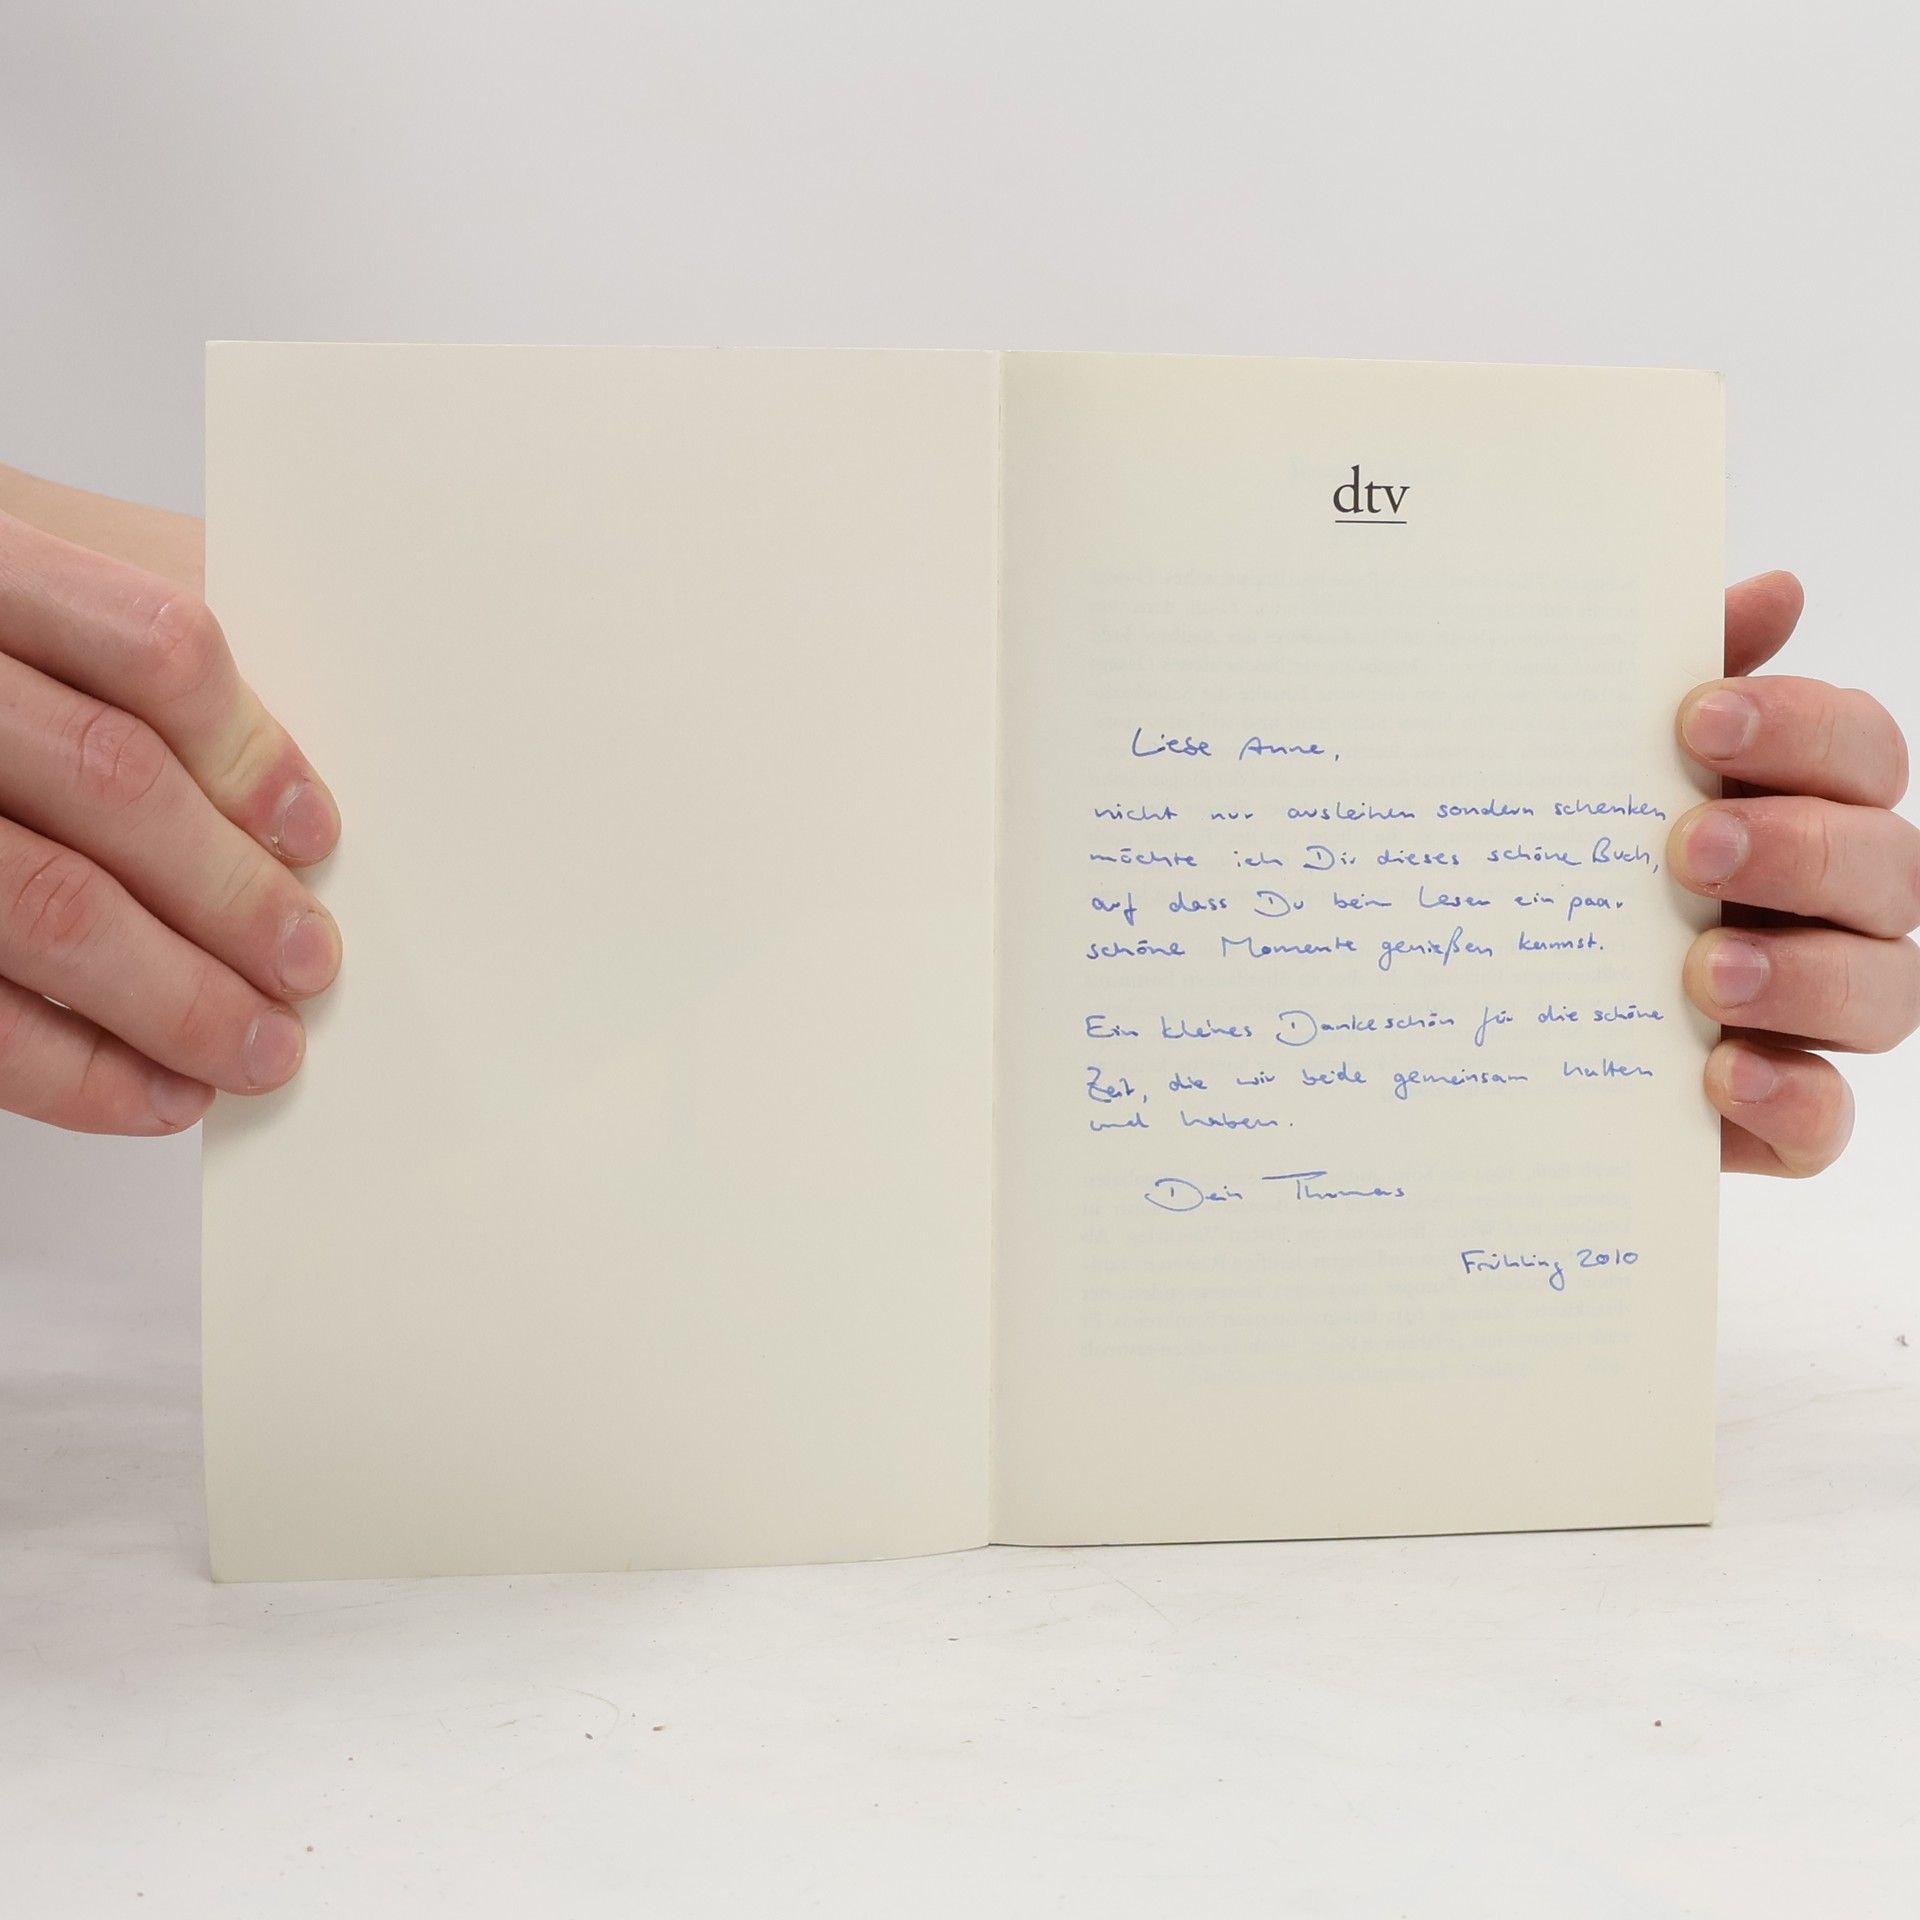 dtv
Liebe Anne,
nicht nur ausleihen sondern schenken
möchte ich Dir dieses schöne Buch,
auf dass Du beim Lesen ein paar
schöne Momente genießen kannst.
Ein kleines Dankeschön für die schöne
Zeit, die wir beide gemeinsam hatten
und haben.
Dein Thomas
Frühling 2010